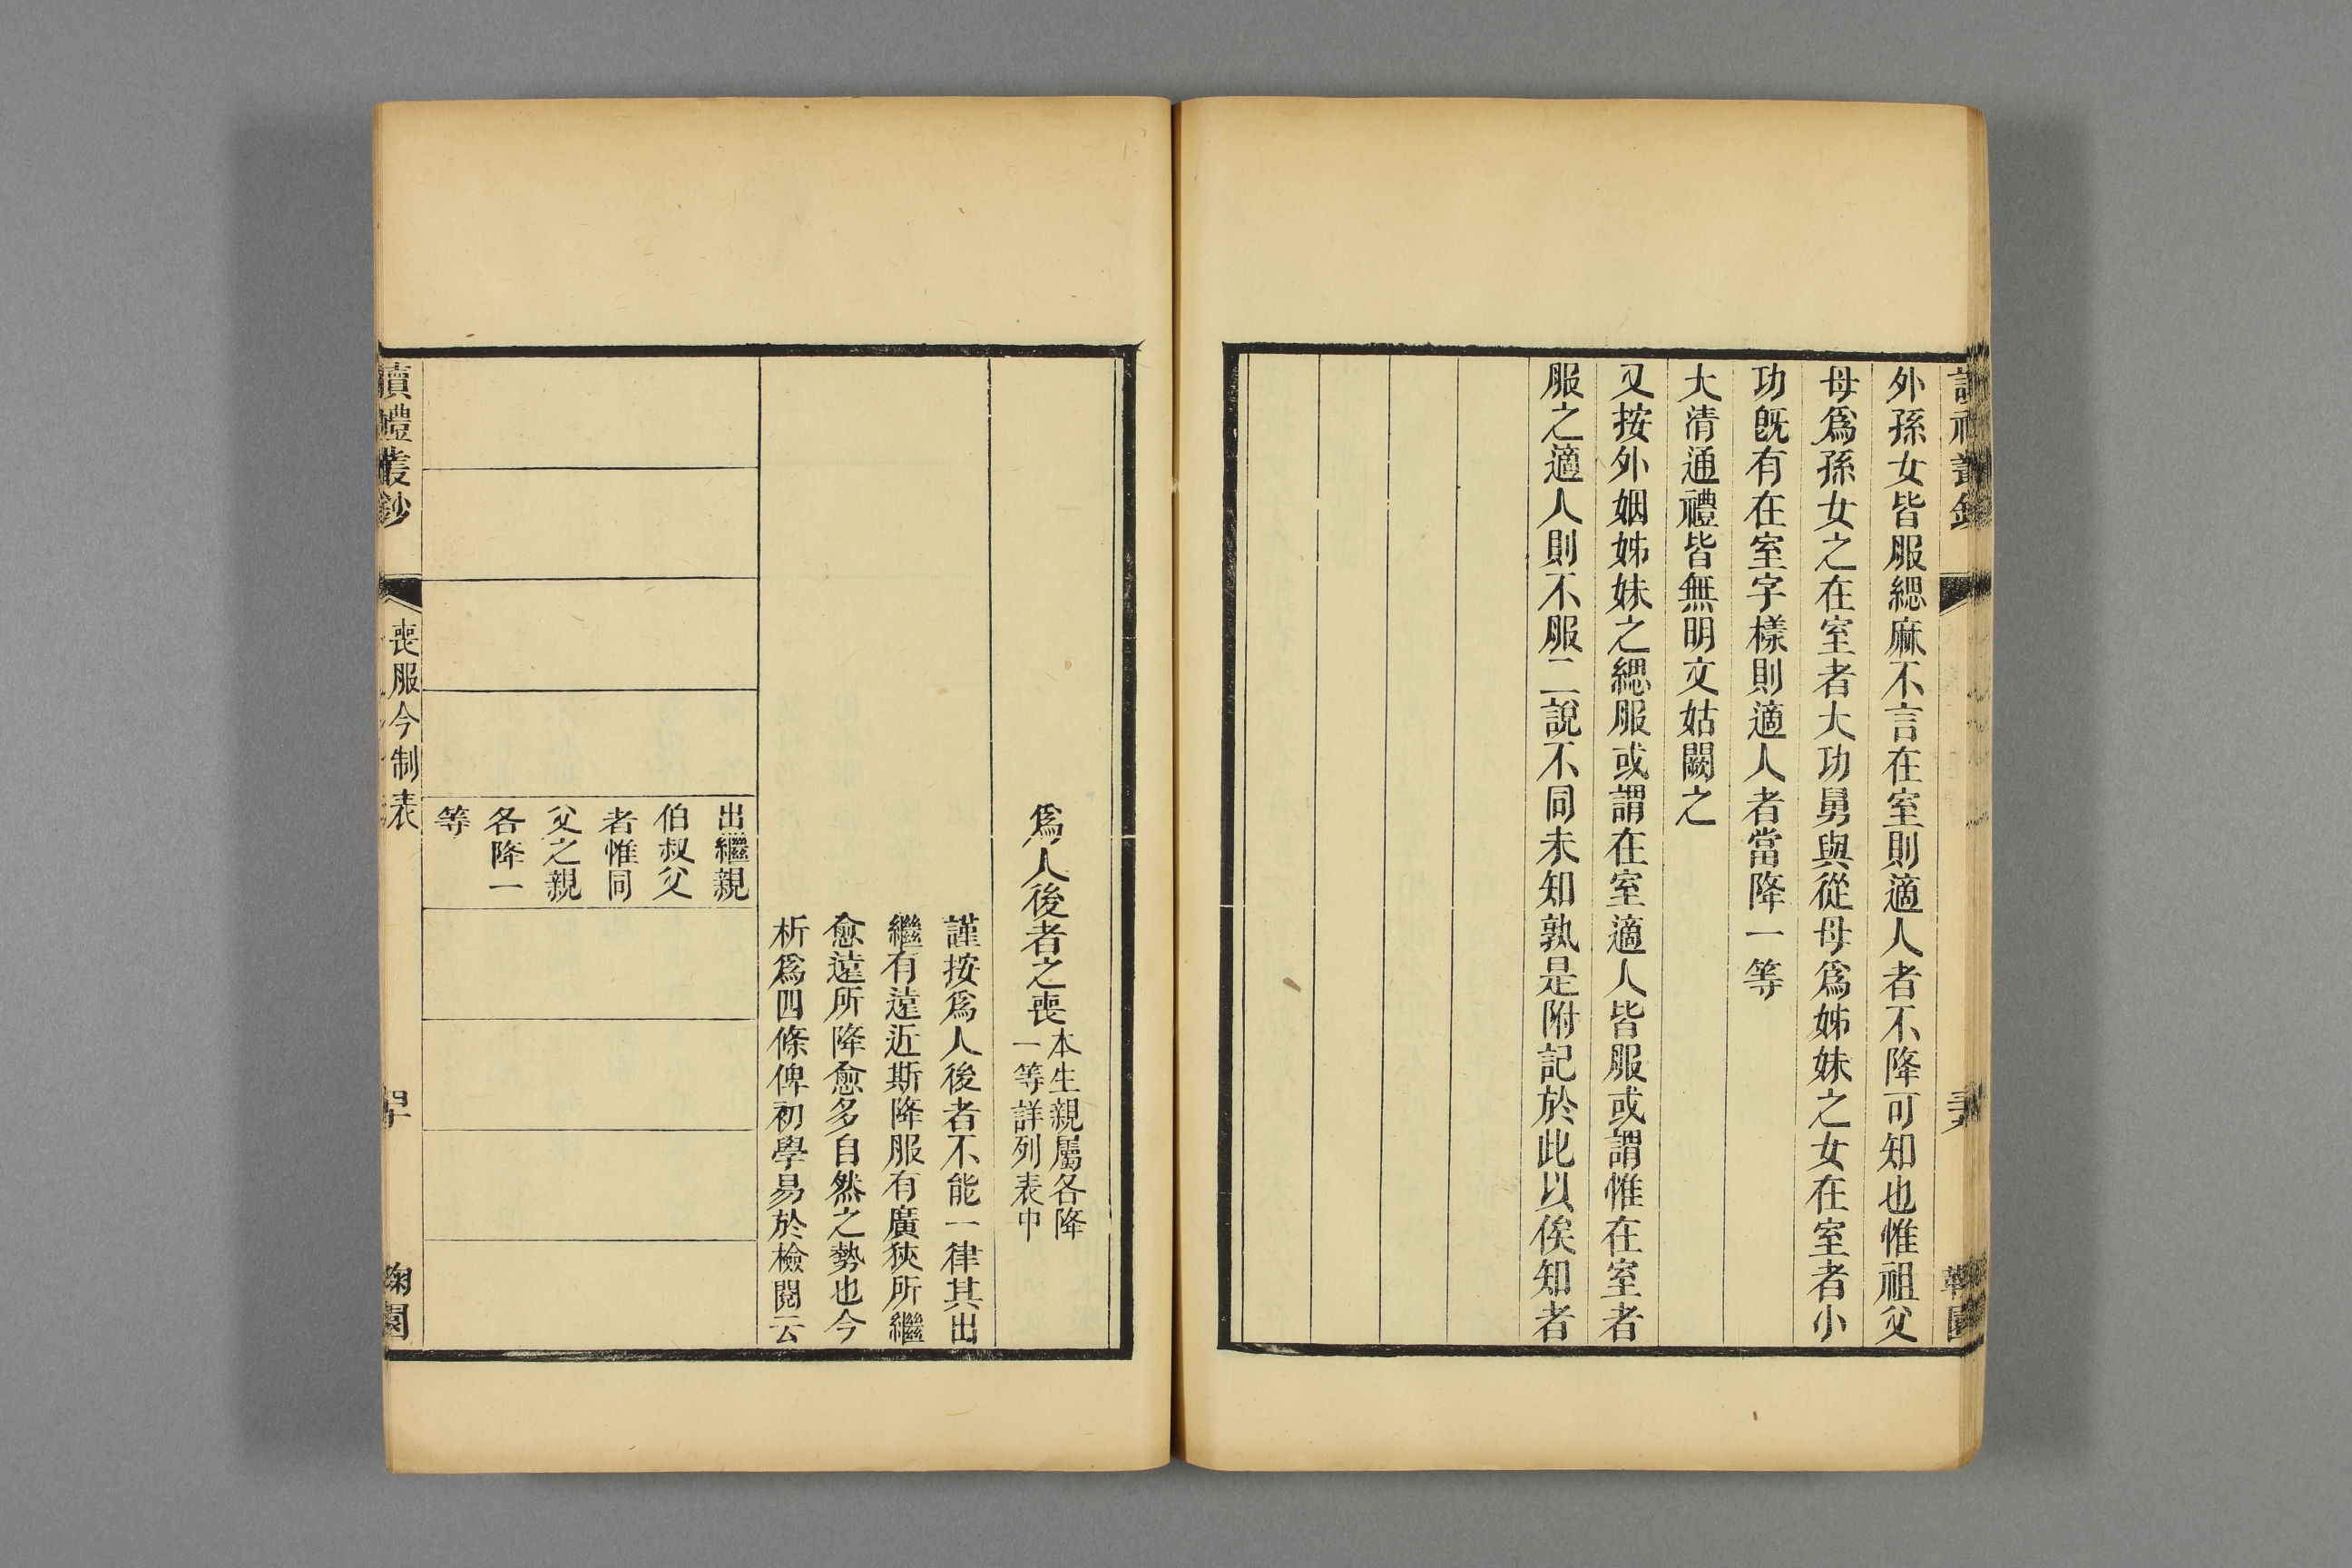 外孫女皆服緦麻不言在室則適人者不降可知也惟祖父
母爲孫女之在室者大功舅與從母爲姊妹之女在室者小
功旣有在室字樣則適人者當降一等
大清通禮皆無明文姑闕之
又按外姻姊妹之緦服或謂在室適人皆服或謂惟在室者
服之適人則不服二說不同未知孰是附記於此以俟知者
爲人後者之喪
本生親屬各降
一等詳列表中
謹按爲人後者不能一律其出
繼有遠近斯降服有廣狹所繼
愈遠所降愈多自然之勢也今
析爲四條俾初學易於檢閱云
出繼親
伯叔父
者惟同
父之親
各降一
等
讀禮叢鈔
喪服今制表
四十
鞠園